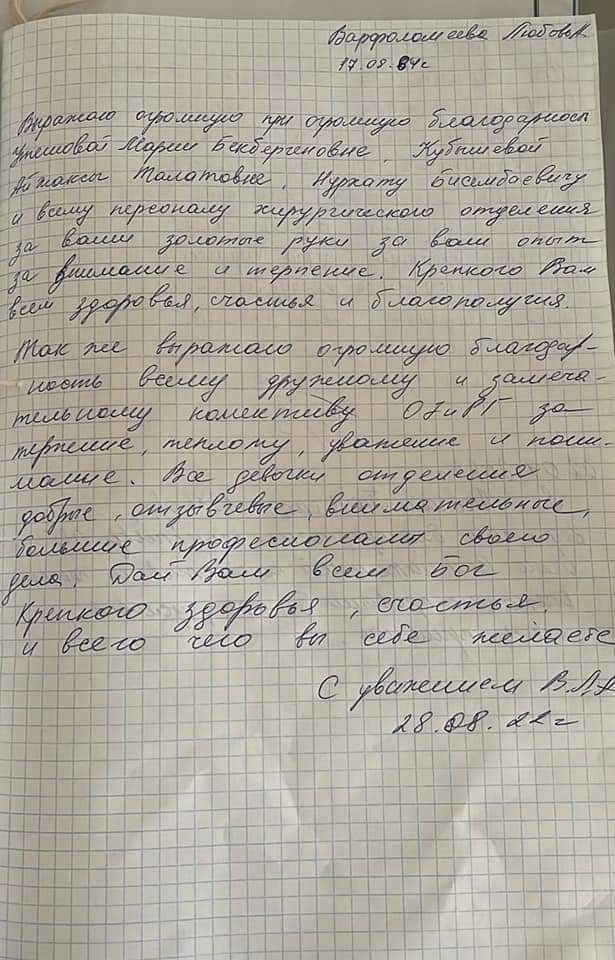 Варфоломеева Любовь А.
17.08.64г
Выражаю огромную при огромную благодарность
Утешовой Марии Бекбергеновне, Кубышевой
Айжаксы Талатовне, Нурхату Бисембаевичу
и всему персоналу хирургического отделения
за ваши золотые руки за ваш опыт
за внимание и терпение. Крепкого Вам
всем здоровья, счастья и благополучия.
Так же выражаю огромную благодар-
ность всему дружному и замеча-
тельному коллективу ОЗиРГ за
терпение, теплоту, уважение и пони-
мание. Все девочки отделения
добрые, отзывчевые, внимательные,
большие професионалы своего
дела. Дай Вам всем Бог
Крепкого здоровья, счастья
и всего чего вы себе желаете
С уважением В.Л.А
28.08.22г